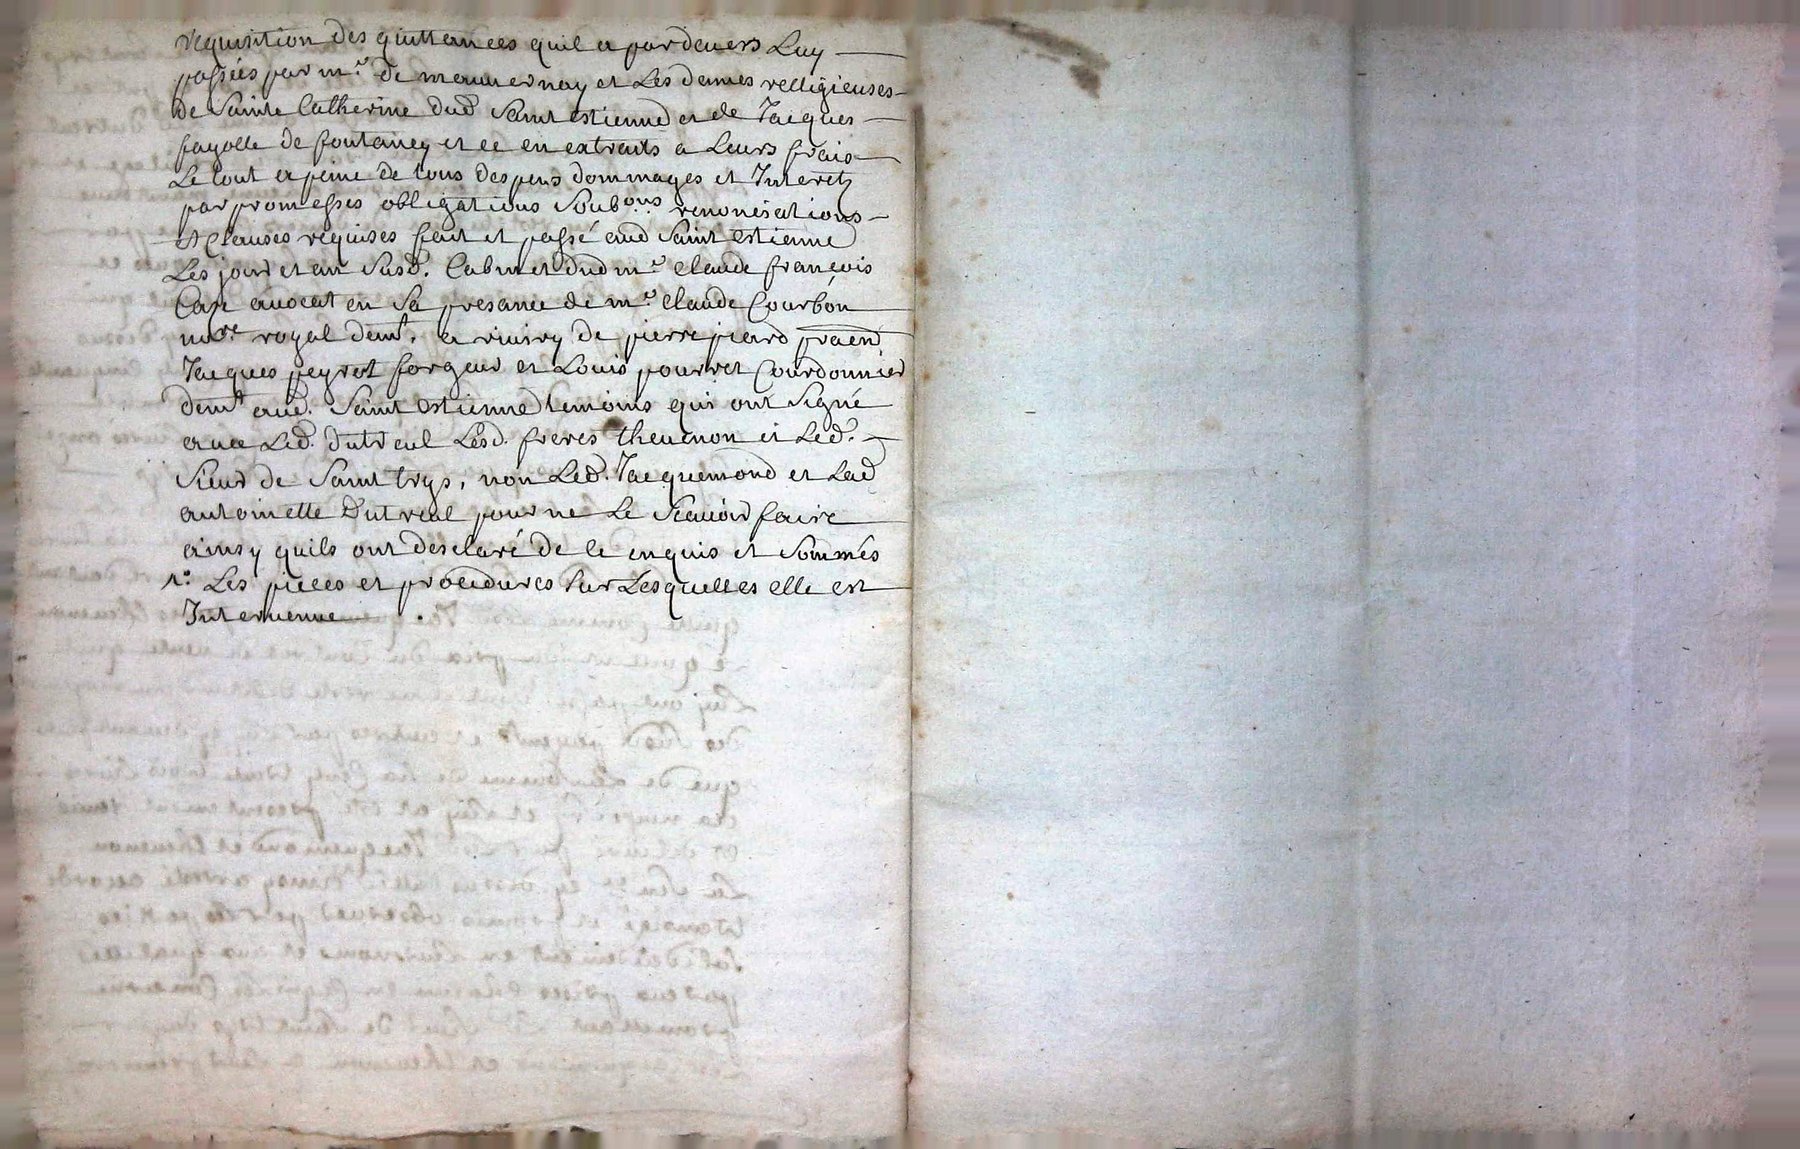 requisition des quittances quil a pardevers Luy
passées par mr. de meauvernay et Les dames relligieuses
de Sainte Catherine dud Saint estienne et de Jacques
fayolle de fontaney et ce en extraits a Leurs frais
Le tout a peine de tous despens dommages et Interetz
par promesses obligations Soubons renonciations
et Clauses requises fait et passé aud Saint estienne
Les jour et an Susd. Cabinet dud mr. Claude françois
avocat en Sa presance de mr. Claude Courbon
nore royal demt. a de pierre picard
Jacques peyrot forgeur et Louis pourret Courdonnier
demt aud. Saint estienne temoins qui ont Signé
avec Led. dutreul Lesd. freres thevenon et Led.
Sieur de Saint trys, non Led. Jacquemond et Lad
antoinette Dutreul pour ne Le Scavoir faire
ainsy quils ont desclaré de ce enquis et Sommés
1o. Les pieces et procedures Sur Lesquelles elle est
Intervenue.